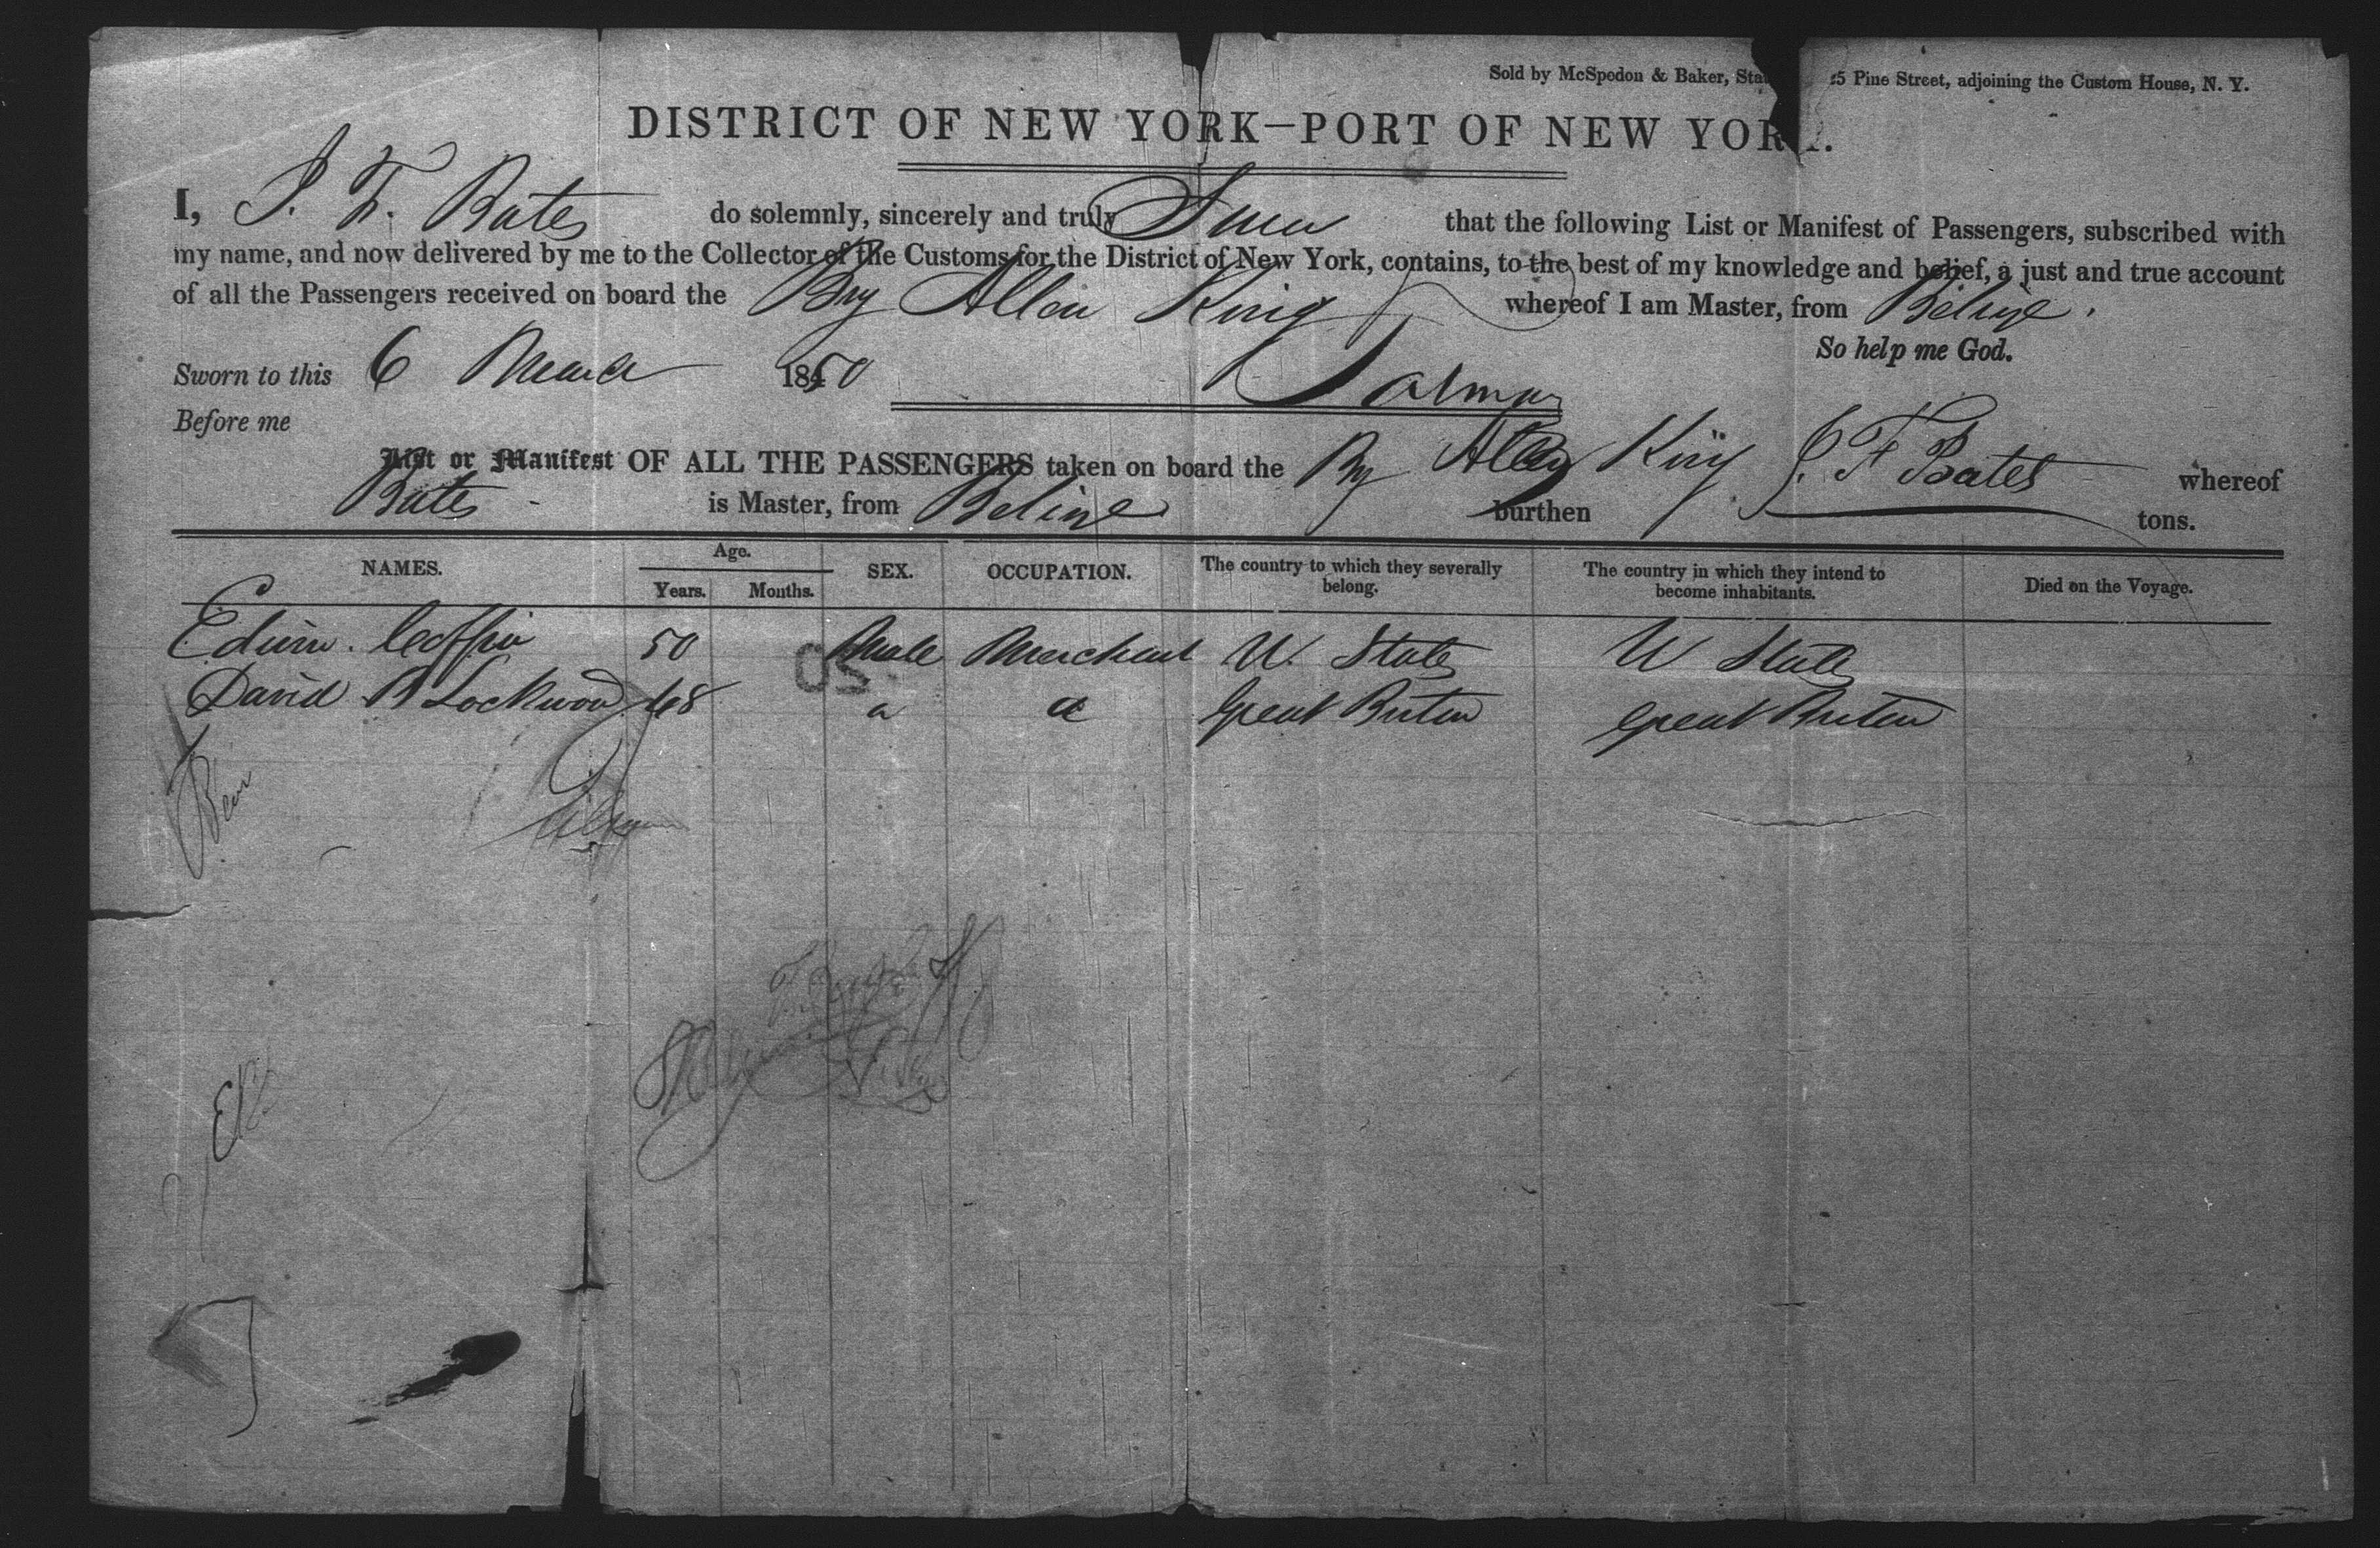 Sold by McSpedon & Baker, Sta 25 Pine Street, adjoining the Custom House, N. Y.
DISTRICT OF NEW YORK—PORT OF NEW YORK.
I, J. F. Bates do solemnly, sincerely and truly Swear that the following List or Manifest of Passengers, subscribed with
my name, and now delivered by me to the Collector of the Customs for the District of New York, contains, to the best of my knowledge and belief, a just and true account
of all the Passengers received on board the Brg Allen King whereof I am Master, from Belize.
So help me God.
Sworn to this 6 March 1850
Before me
List or Manifest OF ALL THE PASSENGERS taken on board the Brg Allen King J. F Bates whereof
Bates is Master, from Belize burthen tons.
NAMES. Age. SEX. OCCUPATION. The country to which they severally belong. The country in which they intend to become inhabitants. Died on the Voyage.
Years. Months.
Edwin Coffin 50 Male Merchant U. States U States
David B Lockwood 48 " " Great Briten Great Briten
20